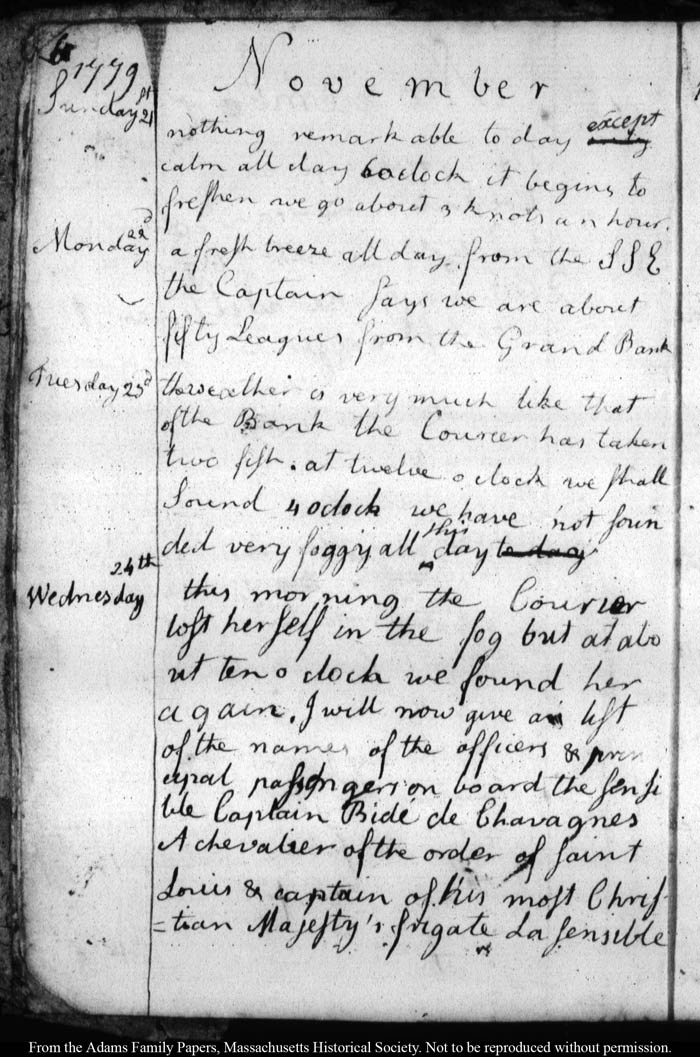 6
1779
November
Sunday 21st
nothing remarkable to day except only
calm all day 6 oclock it begins to
freshen we go about 3 knots an hour.
Monday 22d
a fresh breeze all day from the SSE
the Captain Says we are about
fifty Leagues from the Grand Bank
Tuesday 23d
the weather is very much like that
of the Bank the Courier has taken
two fish. at twelve o clock we shall
Sound 4 oclock we have not soun
ded very foggy all this day to day
24th
Wednesday
this morning the Courier
lost herself in the fog but at abo
ut ten o clock we found her
again. I will now give a list
of the names of the officers & prin
cipal passengers on board the sensi
ble Captain Bidé de Chavagnes
A chevalier of the order of saint
Louis & captain of his most Chris
=tian Majesty's frigate La sensible
From the Adams Family Papers, Massachusetts Historical Society. Not to be reproduced without permission.